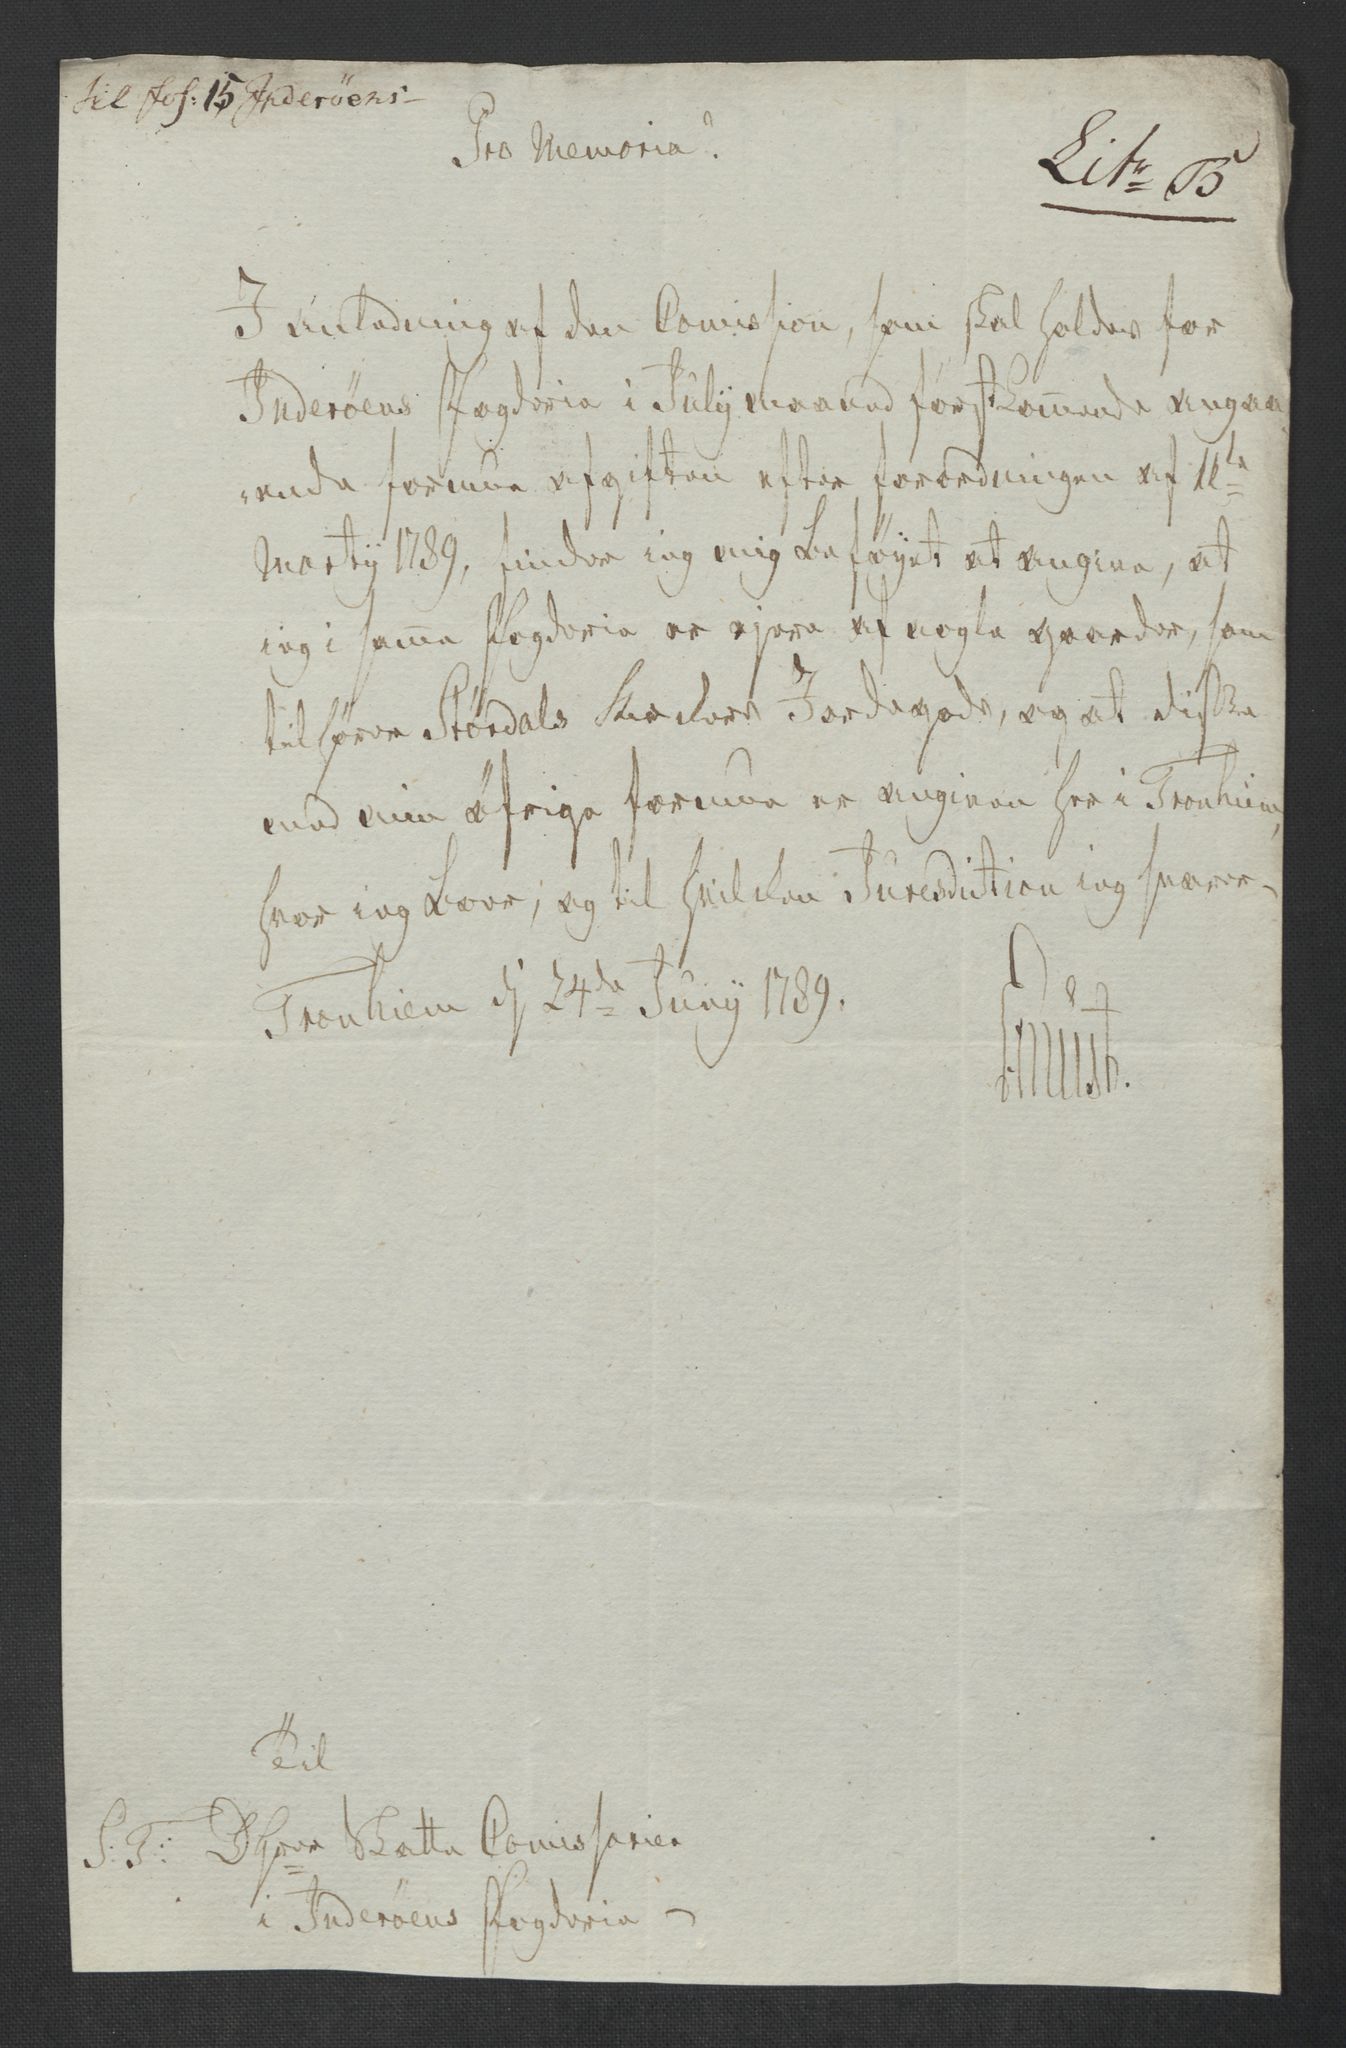 til fol: 15 Inderöens
Pro Memoria.
Litr B
I anledning af den Comission, som skal holdes for
Inderöens Fogderie i July maaned förstkommende angaa
ende formue afgiften efter forordningen af 11te
Martÿ 1789, finder ieg mig beföÿet at angive, at
ieg i samme Fogderie er ejere af nogle gaarder, som
tilhörer Stördals Kirkers Jordegods, og at disse
med min öfrige formue er angiven her i Tronhiem,
hvor ieg boer, og til hvilken Juresdiction ieg svarer
Tronhiem dj 24de Junÿ 1789.
Til
S: T: DHrer Skatte Comissarier
i Inderöens Fogderie